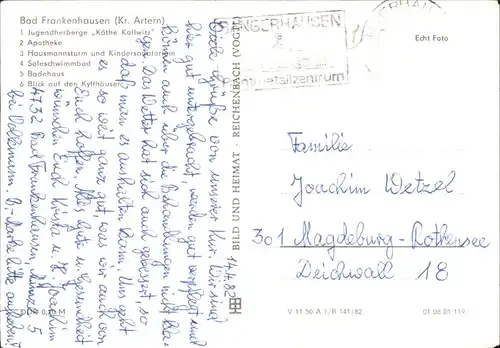 Bad Frankenhausen (Kr. Artern)
1 Jugendherberge „Käthe Kollwitz"
2 Apotheke
3 Hausmannsturm und Kindersanatorium
4 Soleschwimmbad
5 Badehaus
6 Blick auf den Kyffhäuser
DDR 0,20 M
BILD UND HEIMAT · REICHENBACH (VOGTL)
SANGERHAUSEN
Echt Foto
14.4.82
Viele Grüße von unserer Kur. Wir sind
hier gut untergebracht, werden gut verpflegt und
können auch über die Behandlungen nicht kla-
gen. Das Wetter hat sich auch gebessert, so
daß man es aushalten kann. Uns geht
es so weit ganz gut, was wir auch von
Euch hoffen. Alles Gute u. Gesundheit
wünschen Euch Krista u. H. Joachim
4732 Bad Frankenhausen, 5
bei Volksmann, B.-Marke bitte aufheben!
Familie
Joachim Wetzel
301 Magdeburg-Rothensee
Deichwall 18
V 11 50 A 1/B 141/82
01 06 01 119